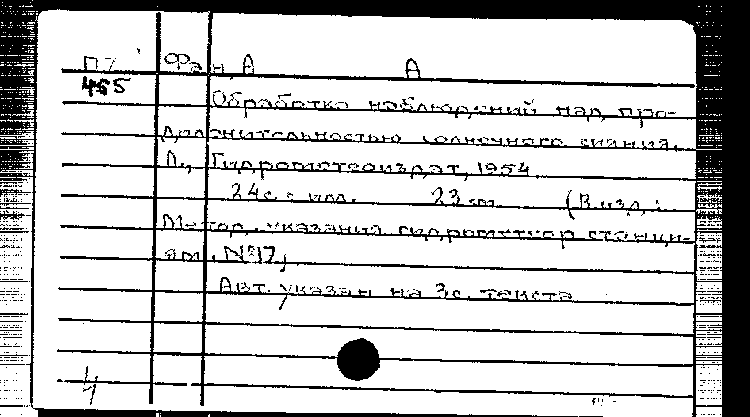 П7 Фан, А А
465
Обработка наблюдений над про-
должительностью солнечного сияния.
Л., Гидрометеоиздат, 1954.
24с. с илл. 23 см. (В изд.:
Метод. указания гидрометеор станци-
ям. №17)
Авт. указан на 3с. текста